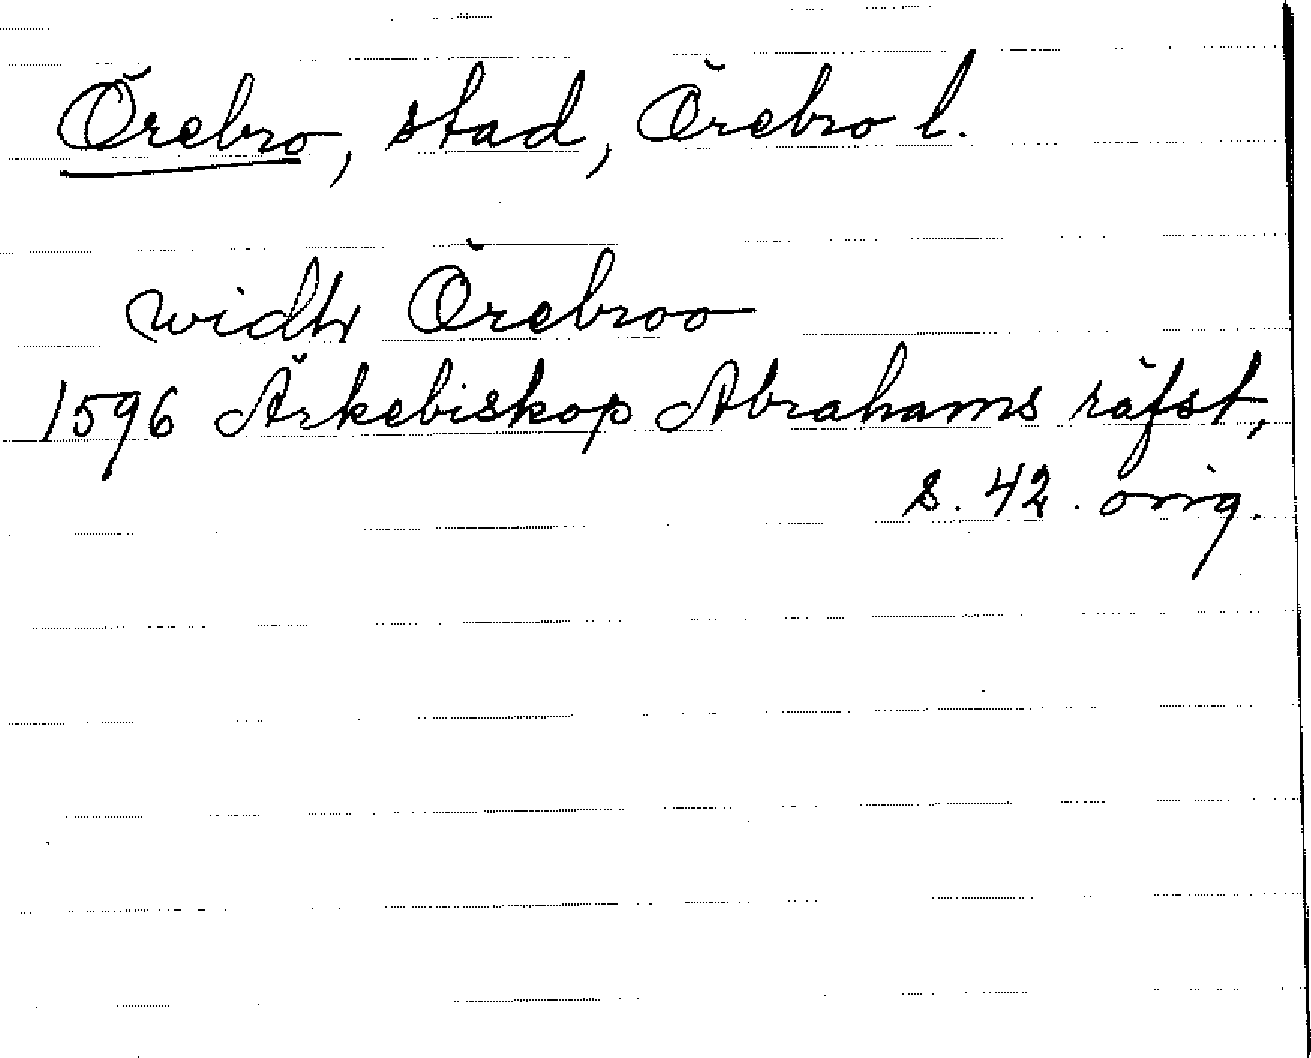 Örebro, stad, Örebro l.
widh Örebroo
1596 Ärkebiskop Abrahams räfst,
s. 42. orig.